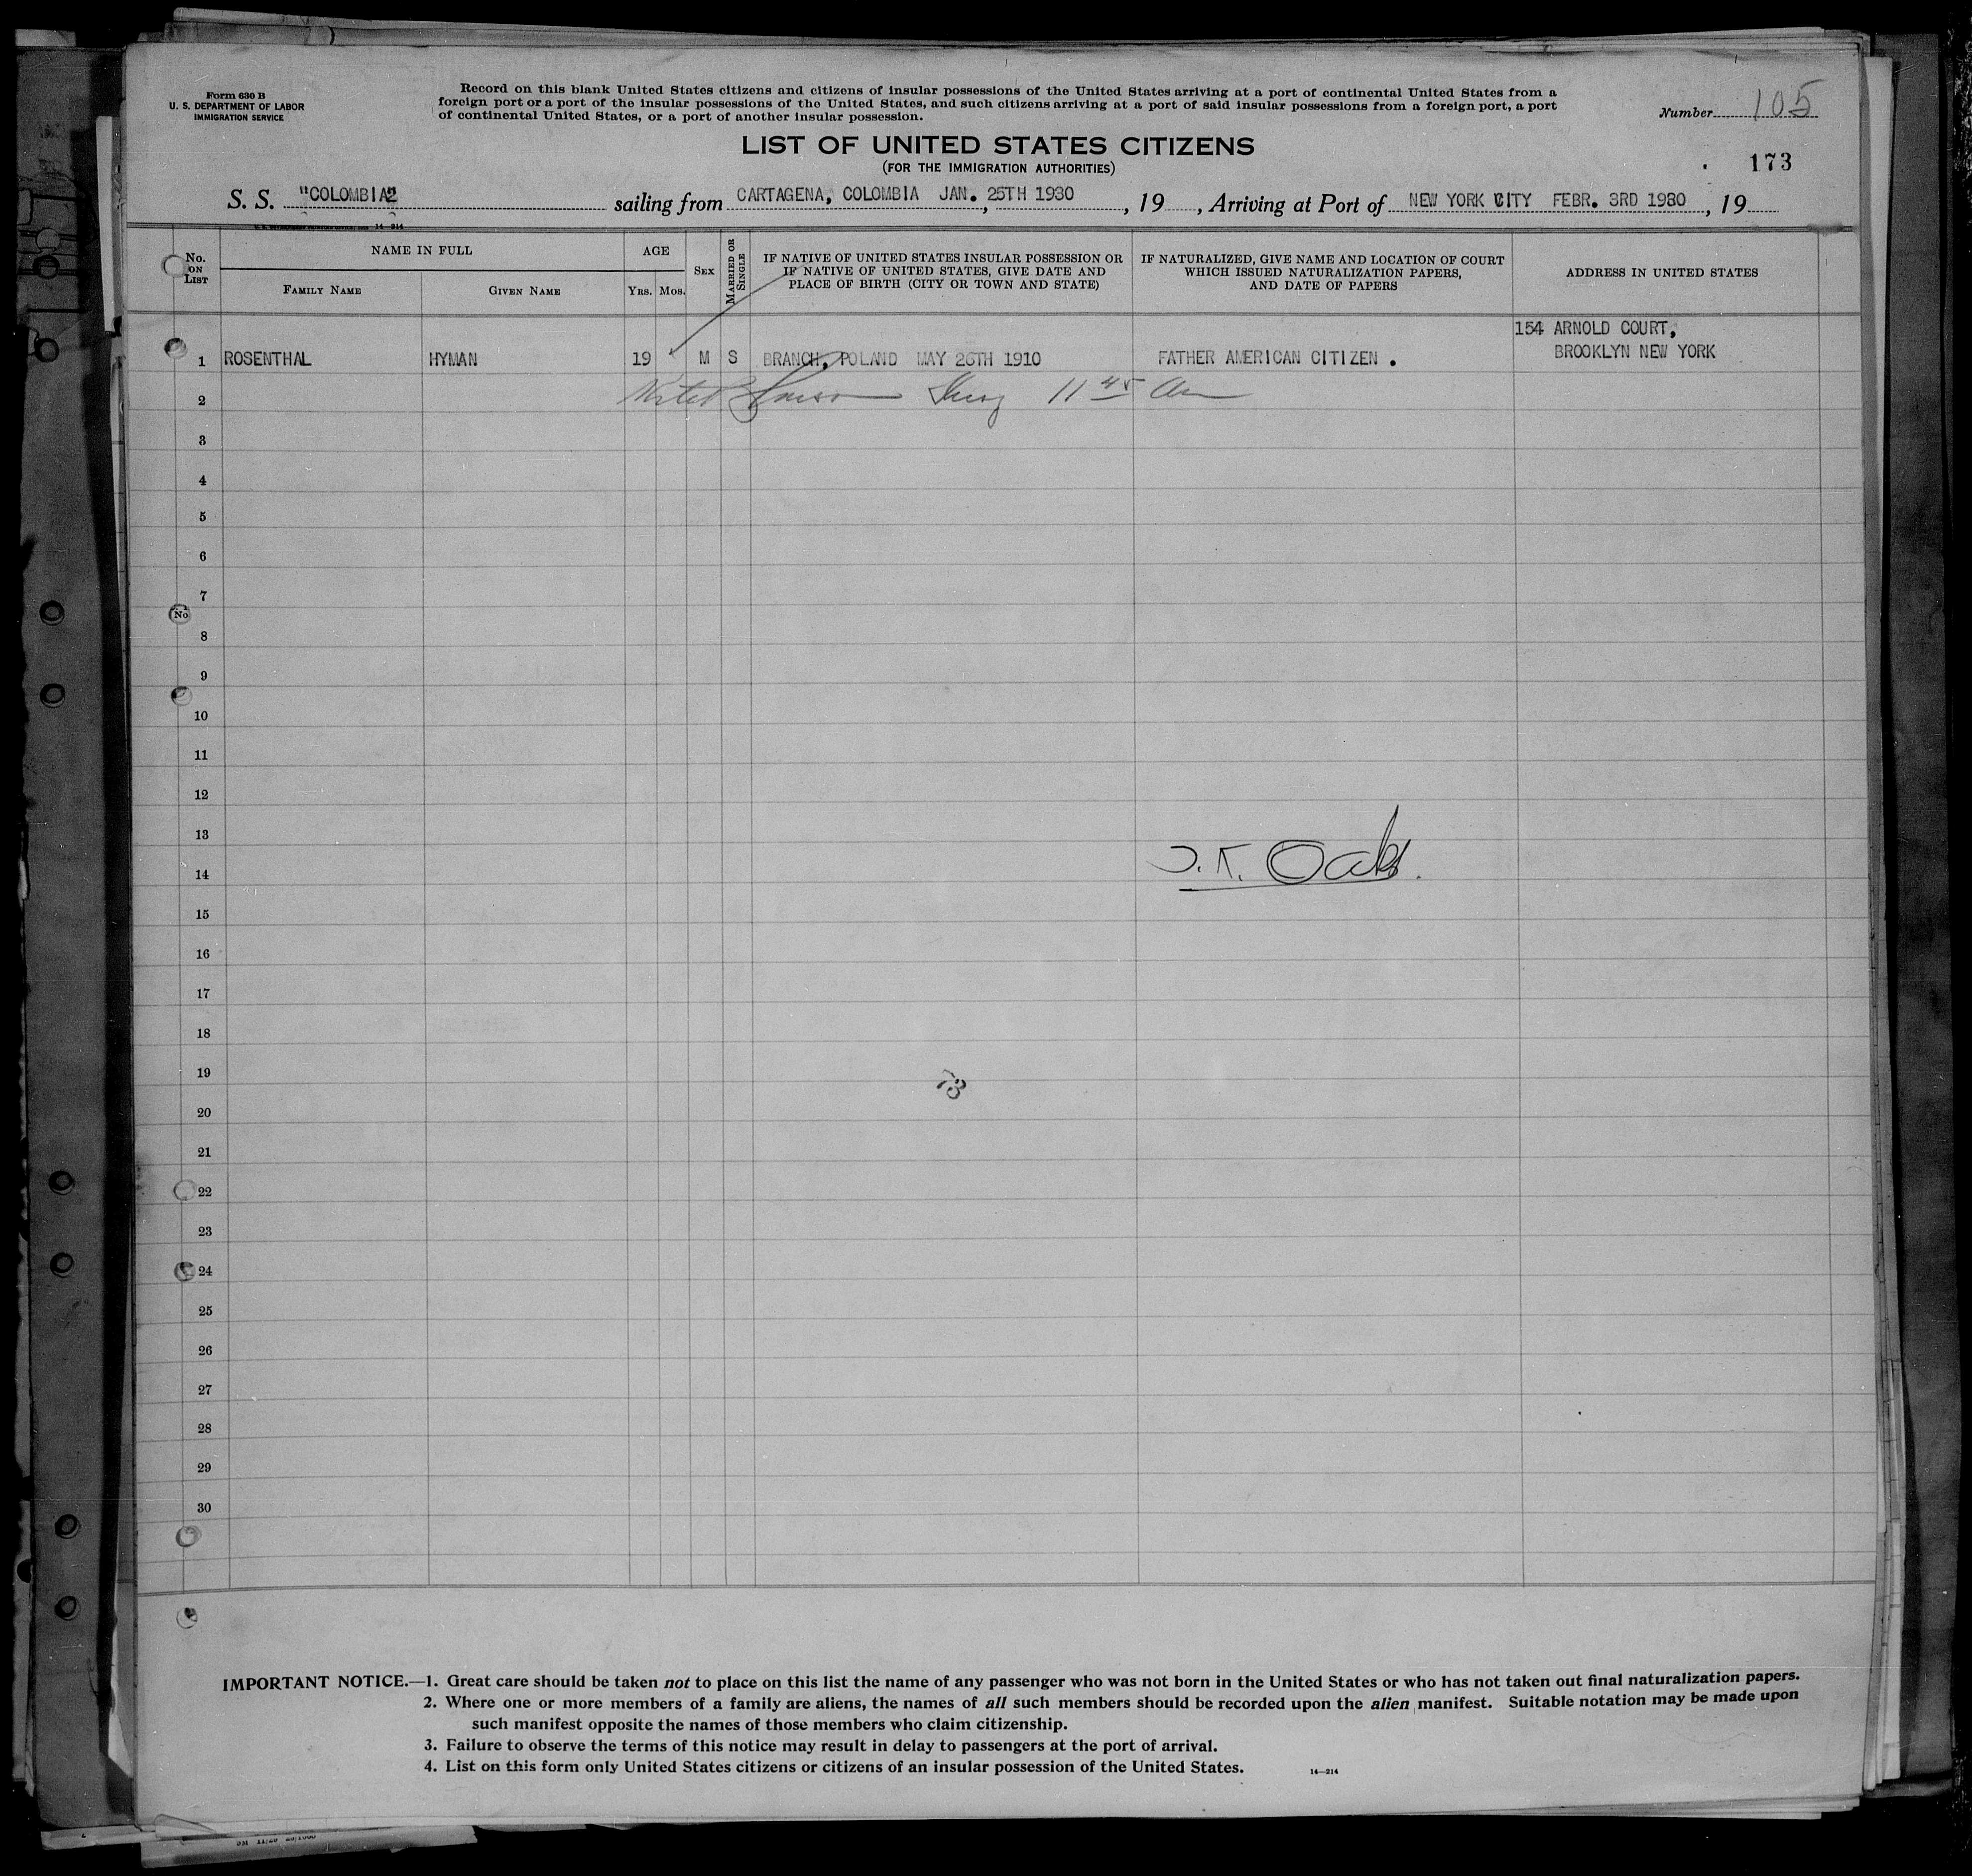 Form 630 B
U. S. DEPARTMENT OF LABOR
IMMIGRATION SERVICE
Record on this blank United States citizens and citizens of insular possessions of the United States arriving at a port of continental United States from a
foreign port or a port of the insular possessions of the United States, and such citizens arriving at a port of said insular possessions from a foreign port, a port
of continental United States, or a port of another insular possession.
Number 105
LIST OF UNITED STATES CITIZENS
(FOR THE IMMIGRATION AUTHORITIES)
173
S. S. "COLOMBIA" sailing from CARTAGENA, COLOMBIA JAN. 25TH 1930, 19 , Arriving at Port of NEW YORK CITY FEBR. 3RD 1930, 19
14—214
No. ON LIST
NAME IN FULL
FAMILY NAME
GIVEN NAME
AGE
YRS. MOS.
SEX
MARRIED OR SINGLE
IF NATIVE OF UNITED STATES INSULAR POSSESSION OR
IF NATIVE OF UNITED STATES, GIVE DATE AND
PLACE OF BIRTH (CITY OR TOWN AND STATE)
IF NATURALIZED, GIVE NAME AND LOCATION OF COURT
WHICH ISSUED NATURALIZATION PAPERS,
AND DATE OF PAPERS
ADDRESS IN UNITED STATES
154 ARNOLD COURT,
1 ROSENTHAL HYMAN 19 M S BRANCH, POLAND MAY 26TH 1910 FATHER AMERICAN CITIZEN . BROOKLYN NEW YORK
2 11 45 am
3
4
5
6
7
No
8
9
10
11
12
13
14
15
16
17
18
19
73
20
21
22
23
24
25
26
27
28
29
30
IMPORTANT NOTICE.—1. Great care should be taken not to place on this list the name of any passenger who was not born in the United States or who has not taken out final naturalization papers.
2. Where one or more members of a family are aliens, the names of all such members should be recorded upon the alien manifest. Suitable notation may be made upon
such manifest opposite the names of those members who claim citizenship.
3. Failure to observe the terms of this notice may result in delay to passengers at the port of arrival.
4. List on this form only United States citizens or citizens of an insular possession of the United States.
14—214